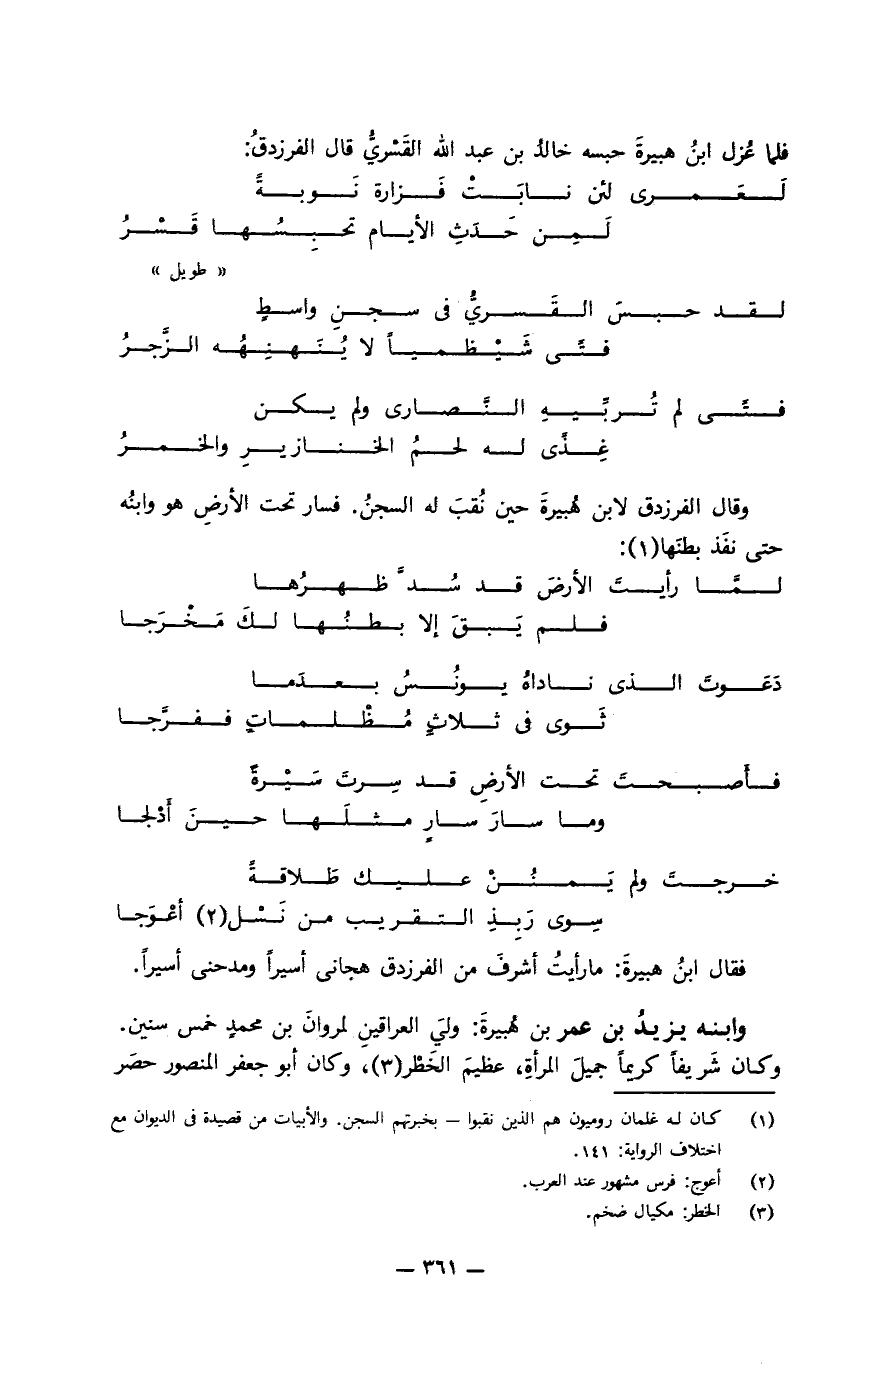 فلما عُزل ابنُ هبيرةَ حبسه خالدُ بن عبد الله القَسْريُّ قال الفرزدقُ:
لَعَمرى لئن نابَتْ فَزارة نَوبةً
لَمِن حَدَثِ الأيام تحبِسُها قَسْرُ
« طويل »
لقد حبسَ القَسريُّ فى سجنِ واسطٍ
فتًى شَيْظمياً لا يُنَهنِهُه الزَّجرُ
فتًى لم تُربِّيهِ النَّصارى ولم يكن
غِذًى له لحمُ الخنازيرِ والخمرُ
وقال الفرزدق لابن هُبيرةَ حين نُقبَ له السجنُ. فسار تحت الأرضِ هو وابنُه
حتى نفَذ بطنَها(١):
لمَّا رأيتَ الأرضَ قد سُدَّ ظهرُها
فلم يَبقَ إلا بطنُها لكَ مَخْرَجا
دَعَوتَ الذى ناداهُ يونُسُ بعدَما
ثَوى فى ثلاثٍ مُظْلماتٍ ففرَّجا
فأَصبحتَ تحت الأرضِ قد سِرتَ سَيْرةً
وما سارَ سارٍ مثلَها حينَ أَدْلجا
خرجتَ ولم يَمنُنْ عليك طَلاقةً
سِوى رَبِذِ التقريبِ من نَسْل(٢) أعْوَجا
فقال ابنُ هبيرةَ: مارأيتُ أشرفَ من الفرزدق هجانى أسيراً ومدحنى أسيراً.
وابنه يزيدُ بن عمر بن هُبيرةَ: وليَ العراقينِ لمروانَ بن محمدٍ خمس سنين.
وكان شَريفاً كريماً جميلَ المرأةِ، عظيمَ الخَطْر(٣)، وكان أبو جعفر المنصور حصَر
(١) كان له غلمان روميون هم الذين نقبوا – بخبرتهم السجن. والأبيات من قصيدة فى الديوان مع
اختلاف الرواية: ١٤١.
(٢) أعوج: فرس مشهور عند العرب.
(٣) الخطر: مكيال ضخم.
– ٣٦١ –